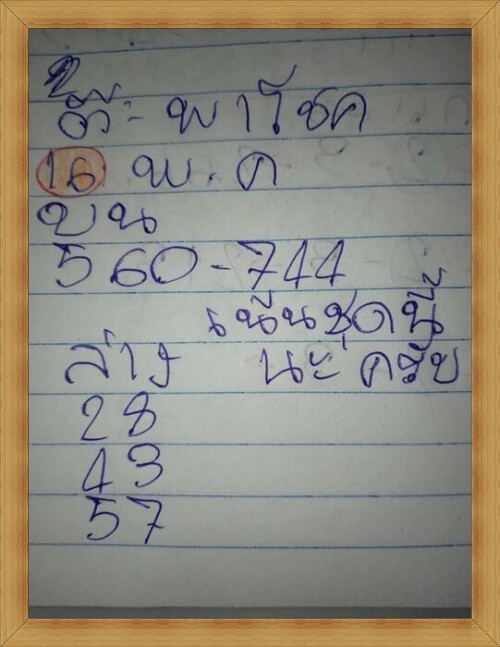 ตี๋ะ-พาโชค
16 พ.ค
บน
560-744
เน้นชุดนี้
ล่าง นะครับ
28
43
57